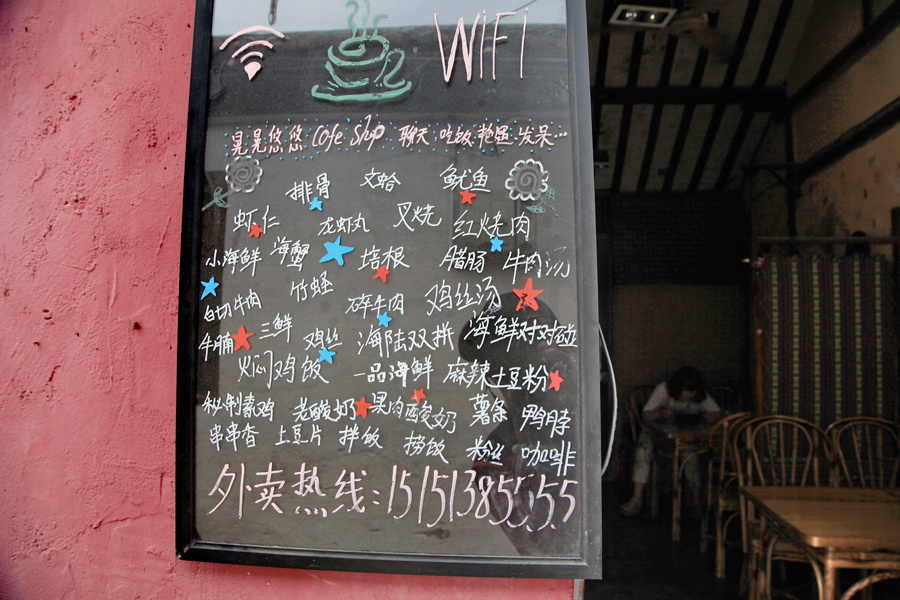 WiFi
晃晃悠悠 Cofe Shop 聊天 吃饭 艳遇 发呆…
排骨 文蛤 鱿鱼
虾仁 龙虾丸 叉烧 红烧肉
小海鲜 海蟹 培根 腊肠 牛肉汤
白切牛肉 竹蛏 碎牛肉 鸡丝汤
牛腩 三鲜 鸡丝 海陆双拼 海鲜对对碰
焖鸡饭 一品海鲜 麻辣土豆粉
秘制素鸡 老酸奶 果肉酸奶 薯条 鸭脖
串串香 土豆片 拌饭 捞饭 粉丝 咖啡
外卖热线：15151385555